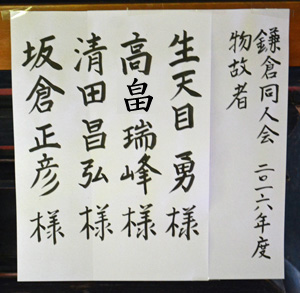 鎌倉同人会 二〇一六年度
物故者
生天目 勇 様
高畠 瑞峰 様
清田 昌弘 様
坂倉 正彦 様